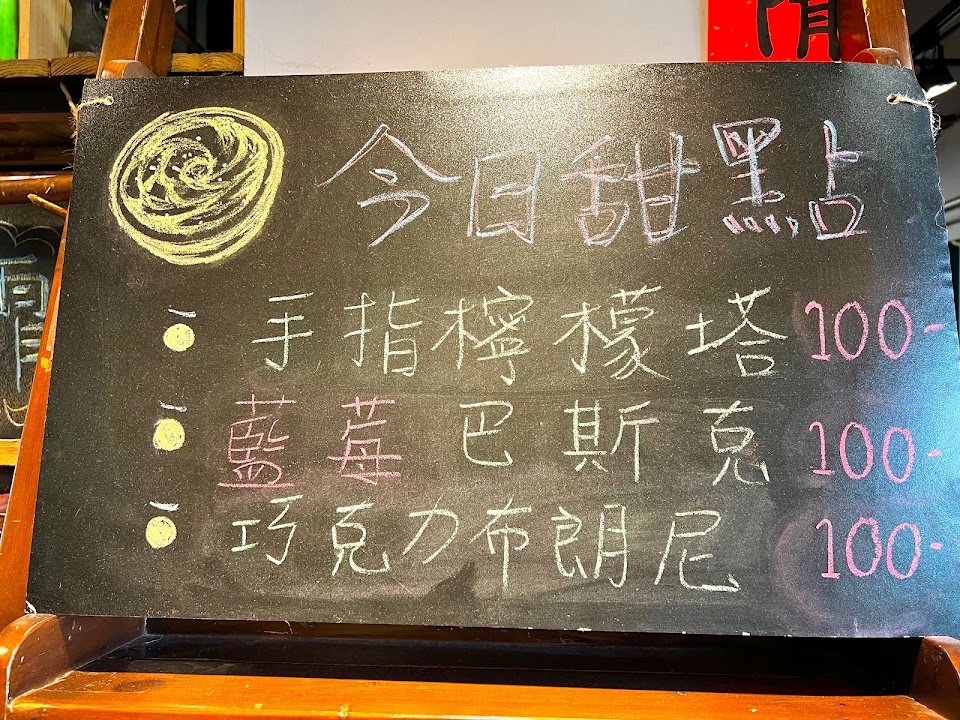 今日甜點
手指檸檬塔 100-
藍莓巴斯克 100-
巧克力布朗尼 100-